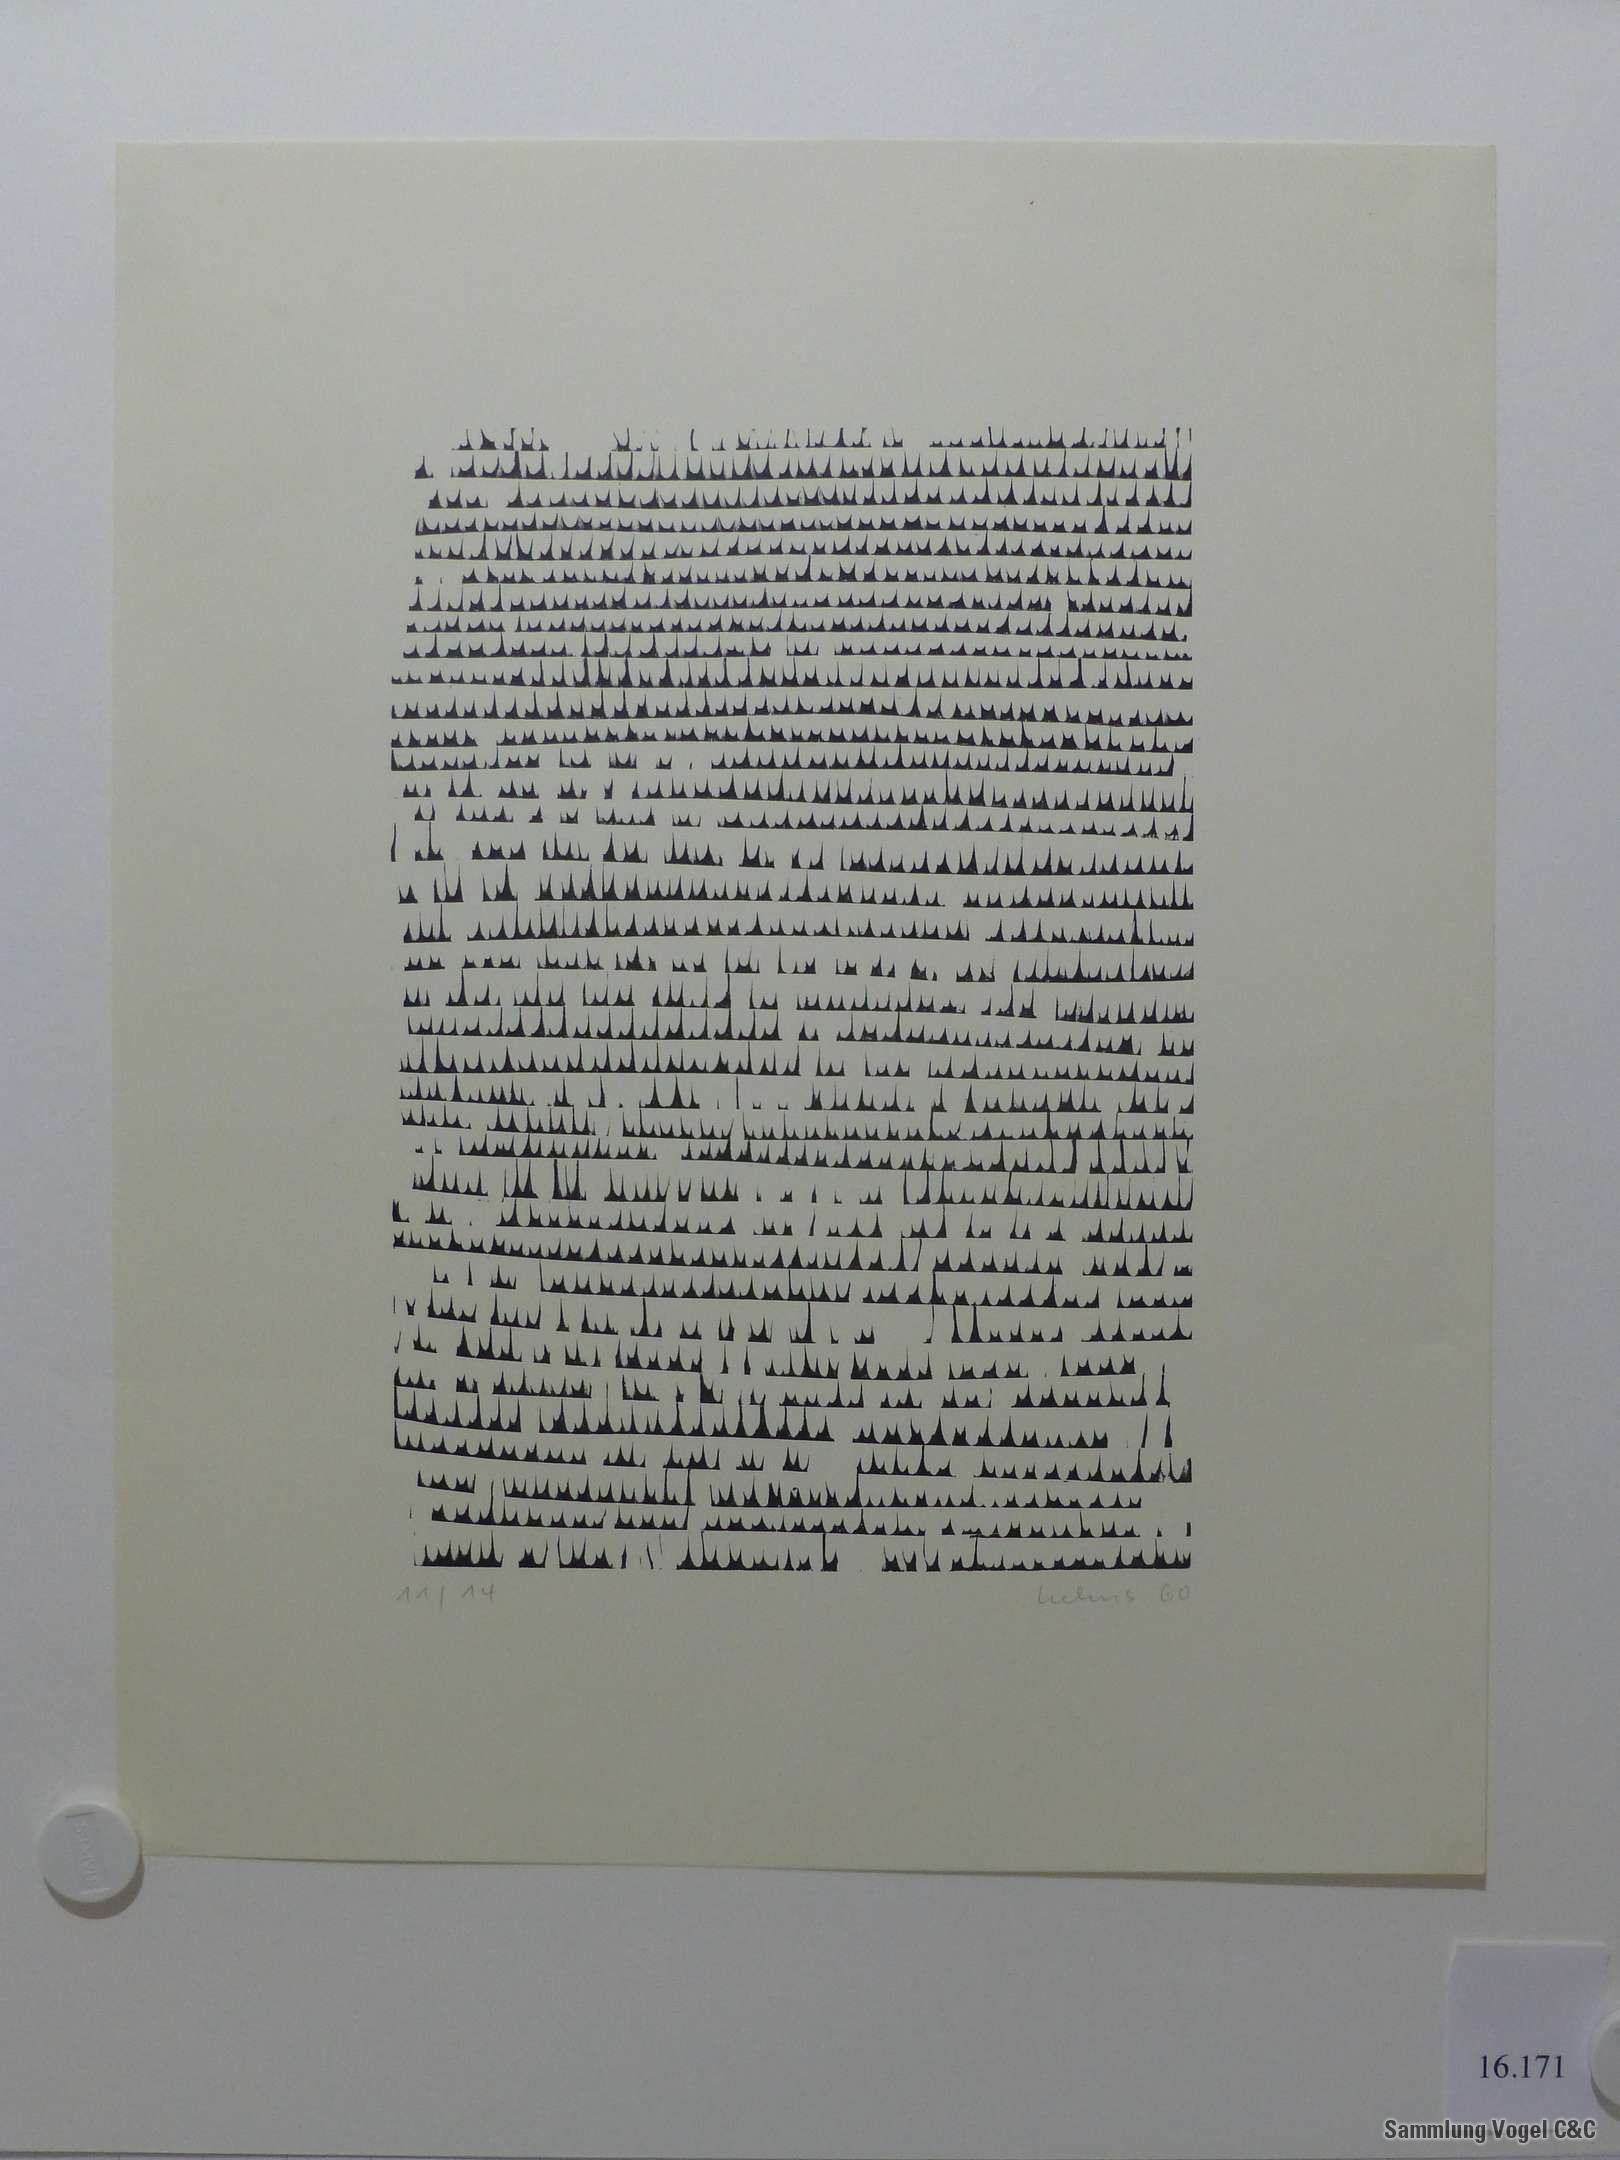 11/14
helms 60
16.171
Sammlung Vogel C&C